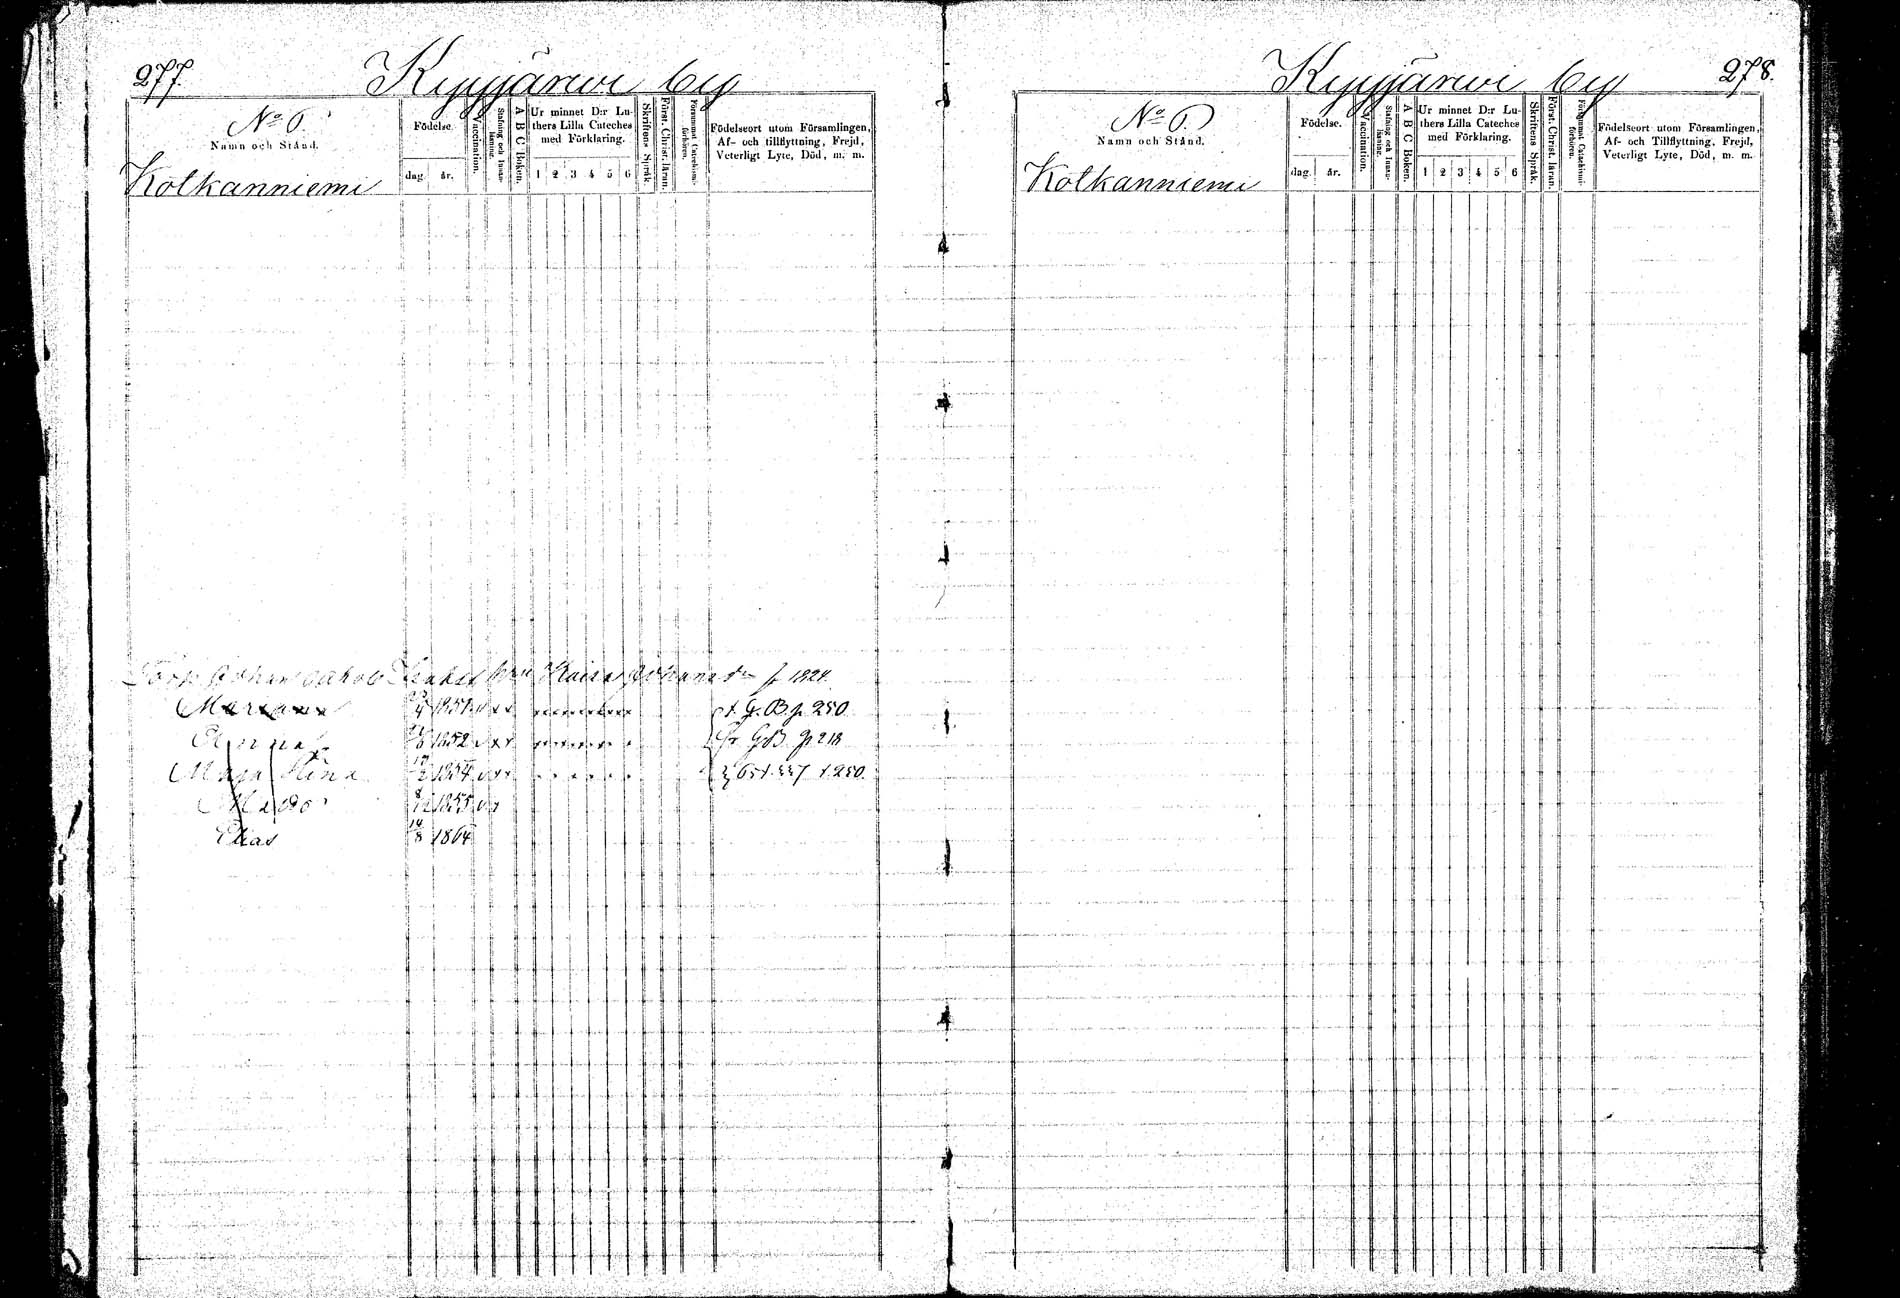 277.
Kyyjärwi by
No 6.
Namn och Stånd.
Kolkanniemi
Födelse.
dag. år.
Vaccination.
Stafning och Innanläsning.
A B C Boken.
Ur minnet D:r Luthers Lilla Cateches med Förklaring.
1 2 3 4 5 6
Skriftens Språk.
Först. Christ. läran.
Försummat Catechismiförhören.
Födelseort utom Församlingen,
Af- och tillflyttning, Frejd,
Veterligt Lyte, Död, m. m.
Johan Jakob Kaisa Johansdr f 1824
Mariana 4 1851 G. B. p. 250
Anna 8 1852 G B. p 218
Maja Stina 17 2 1854 f. 250
8 1855
Elias 14 8 1864
278.
Kyyjärwi by
No 6.
Namn och Stånd.
Kolkanniemi
Födelse.
dag. år.
Vaccination.
Stafning och Innanläsning.
A B C Boken.
Ur minnet D:r Luthers Lilla Cateches med Förklaring.
1 2 3 4 5 6
Skriftens Språk.
Först. Christ. läran.
Försummat Catechismiförhören.
Födelseort utom Församlingen,
Af- och Tillflyttning, Frejd,
Veterligt Lyte, Död, m. m.